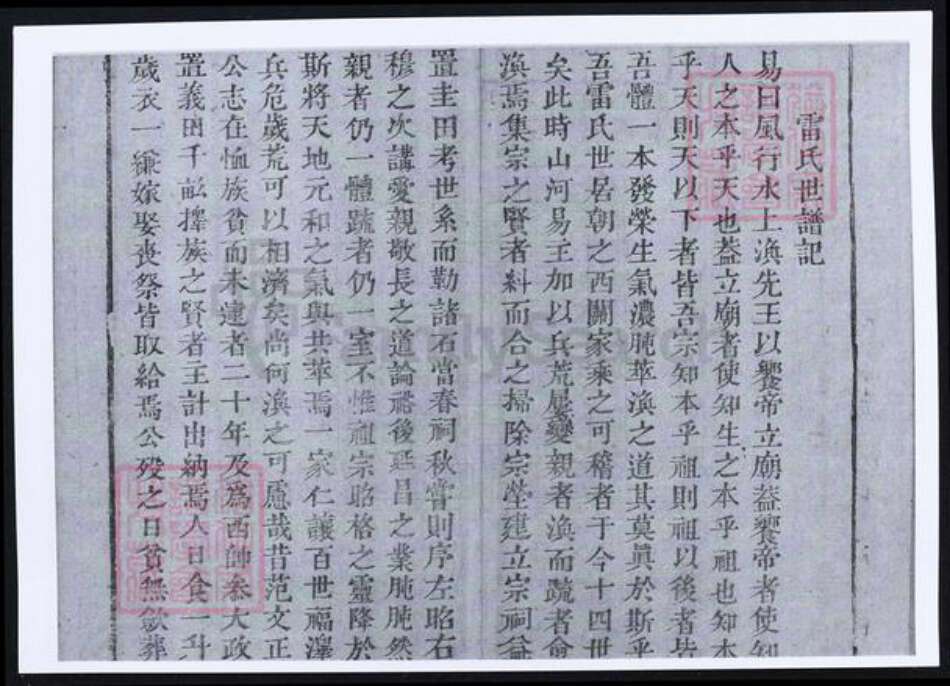 雷氏世譜記
易曰風行水上渙先王以饗帝立廟葢饗帝者使知
人之本乎天也葢立廟者使知生之本乎祖也知本
乎天則天以下者皆吾宗知本乎祖則祖以後者皆
吾體一本發榮生氣濃肫萃渙之道其莫眞於斯乎
吾雷氏世居朝之西關家乘之可稽者于今十四世
矣此時山河易主加以兵荒屢變親者渙而踈者愈
渙焉集宗之賢者糾而合之掃除宗塋建立宗祠益
置圭田考世系而勒諸石當春祠秋嘗則序左昭右
穆之次講愛親敬長之道論裕後延昌之業肫肫然
親者仍一體踈者仍一室不惟祖宗昭格之靈降於
斯將天地元和之氣與共萃焉一家仁讓百世福澤
兵危歲荒可以相濟矣尚何渙之可慮哉昔范文正
公志在恤族貧而未逮者二十年及爲西帥叅大政
置義田千畝擇族之賢者主計出納焉人日食一升
歲衣一縑嫁娶喪祭皆取給焉公歿之日貧無歛葬